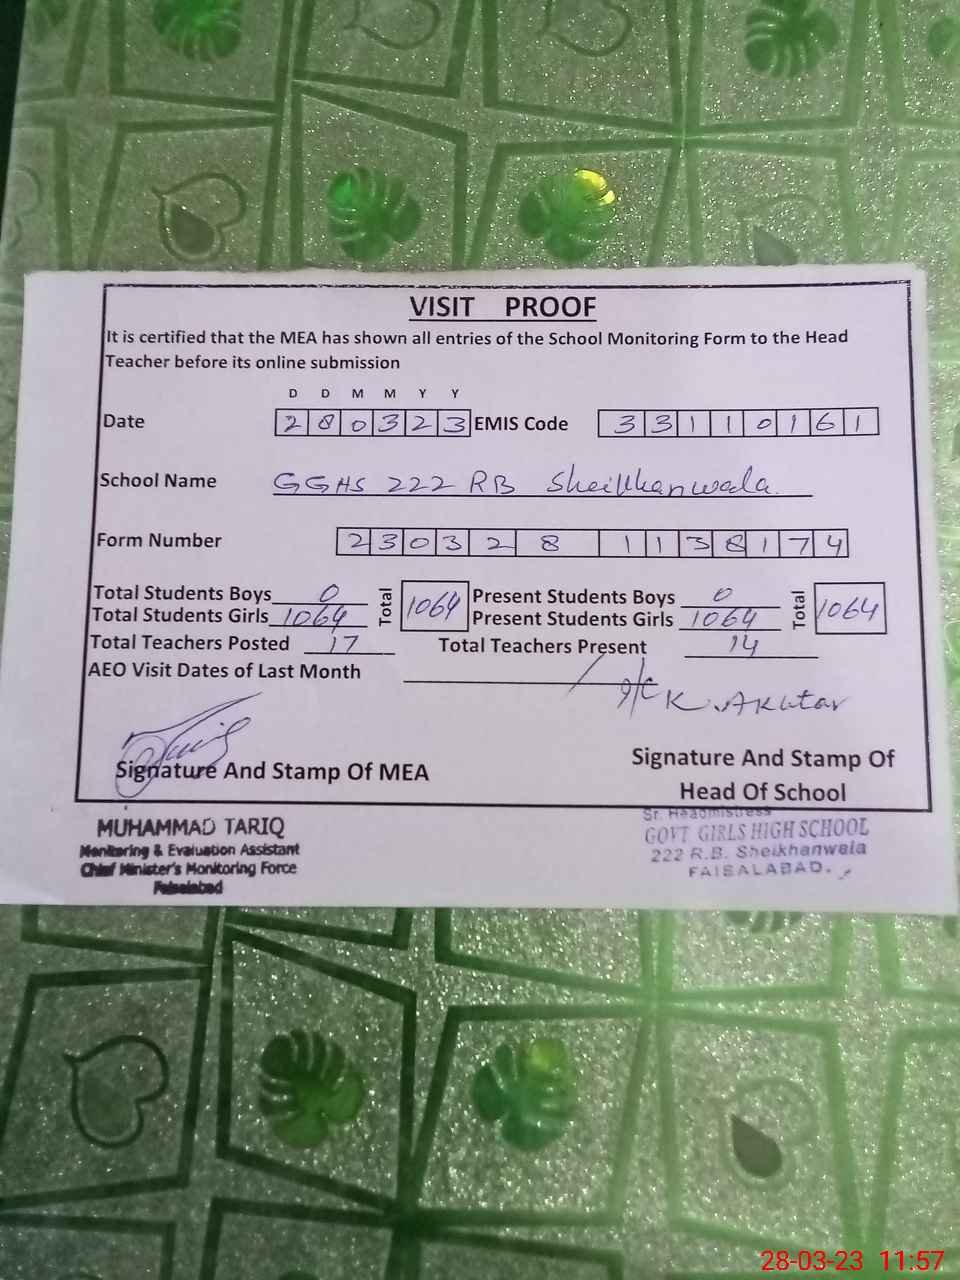 VISIT PROOF
It is certified that the MEA has shown all entries of the School Monitoring Form to the Head
Teacher before its online submission
D D M M Y Y
Date 280323 EMIS Code 33110161
School Name GGHS 222 RB Sheikhanwala
Form Number 230328 1138174
Total Students Boys 0 Total 1064 Present Students Boys 0 Total 1064
Total Students Girls 1064 Present Students Girls 1064
Total Teachers Posted 17 Total Teachers Present 14
AEO Visit Dates of Last Month /
I/C K. Akhtar
Signature And Stamp Of MEA
Signature And Stamp Of
Head Of School
MUHAMMAD TARIQ
Monitoring & Evaluation Assistant
Chief Minister's Monitoring Force
Faisalabad
Sr. Headmistress
GOVT GIRLS HIGH SCHOOL
222 R.B. Sheikhanwala
FAISALABAD.
28-03-23 11:57